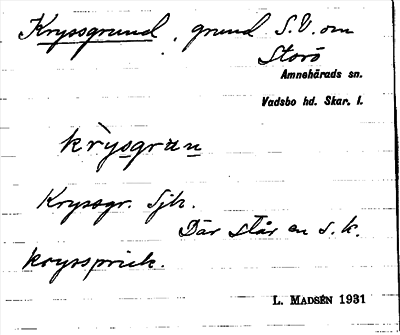 Kryssgrund, grund S.V. om
Storö
Amnehärads sn.
Vadsbo hd. Skar. l.
krysgrun
Kryssgr. Sjk.
Där står en s.k.
kryssprick.
L. MADSÉN 1931